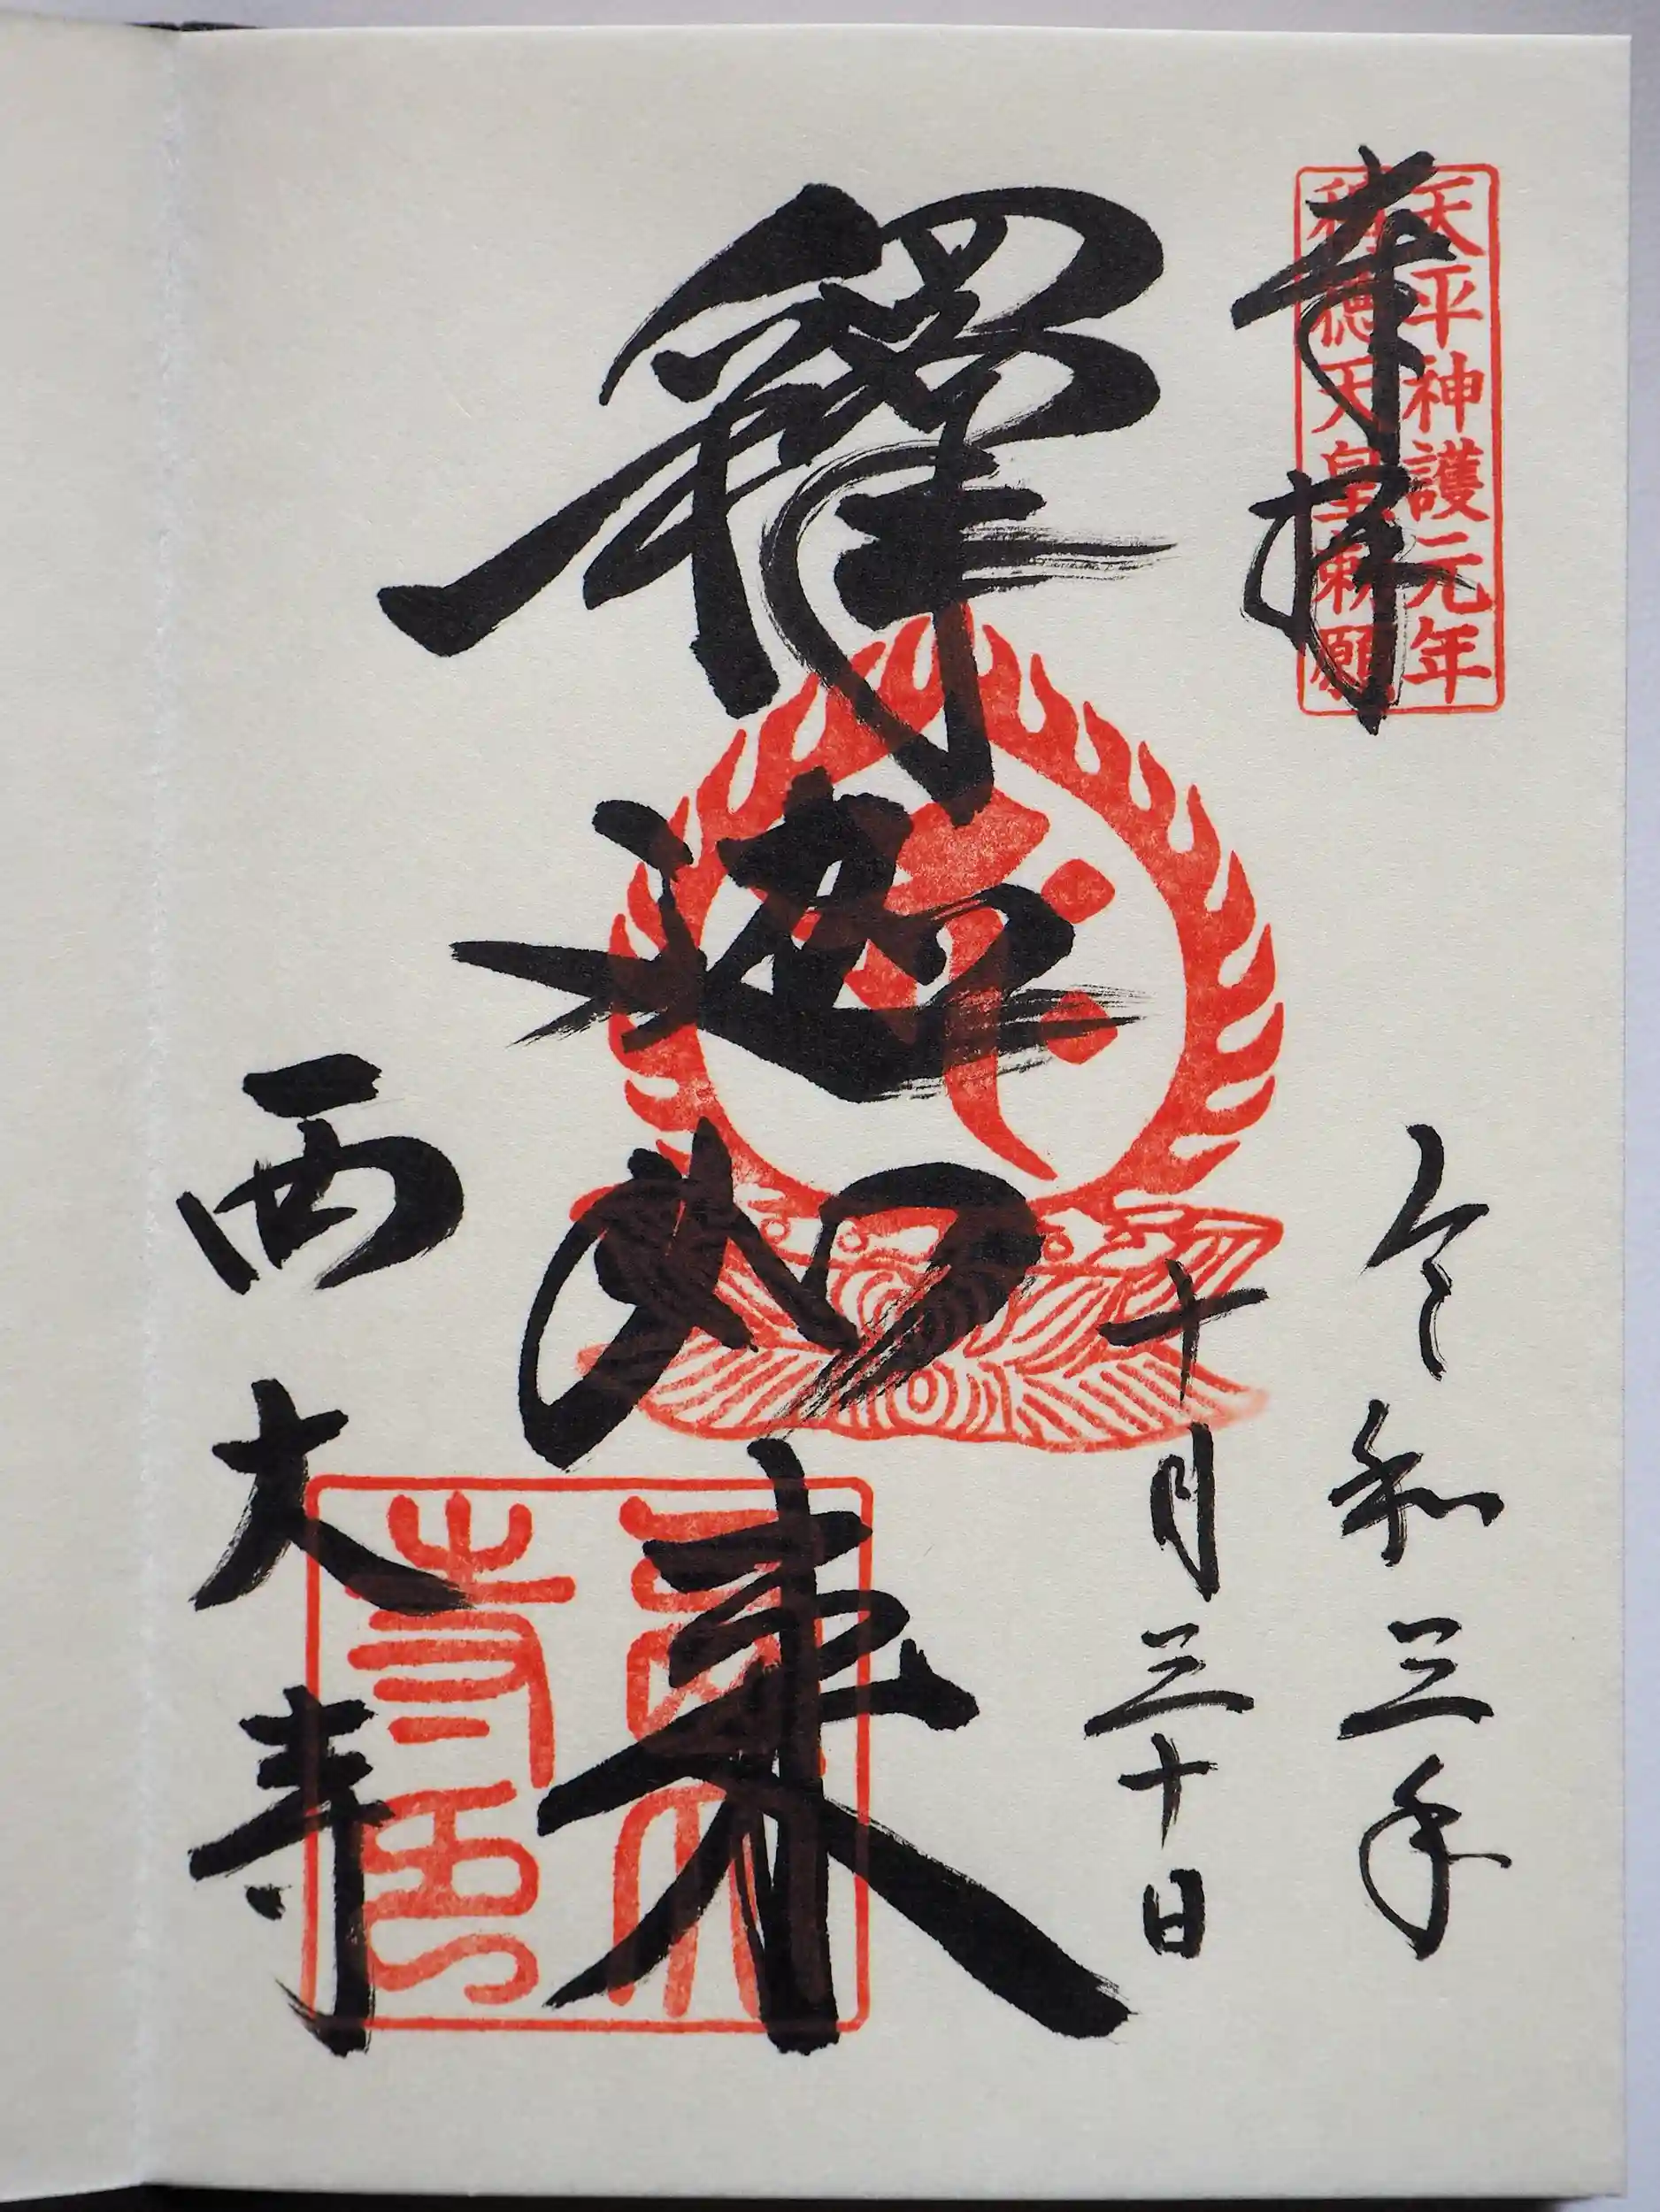 奉拝
天平神護元年
称徳天皇勅願
令和三年
十月三十日
釋迦如来
西大寺